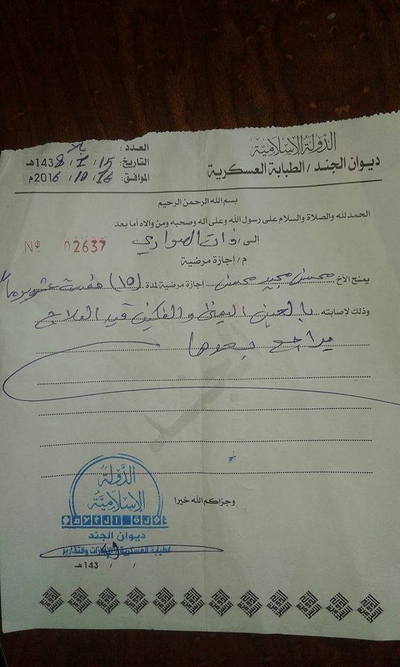 الدولة الإسلامية
ديوان الجند / الطبابة العسكرية
العدد :
التاريخ: 15 / 1 / 1438هـ
الموافق: 16 / 10 / 2016م
بسم الله الرحمن الرحيم
الحمد لله والصلاة والسلام على رسول الله وعلى آله وصحبه ومن والاه أما بعد
إلى / ذات الصواري
Nº 02637
م / إجازة مرضية
يمنح الأخ محسن مجيد محسن إجازة مرضية لمدة (15) خمسة عشر يوما
وذلك لإصابته بالعين اليمنى والفكين قيد العلاج
يراجع بعدها
وجزاكم الله خيرا
الدولة
الإسلامية
ديوان الجند
/ / 143هـ